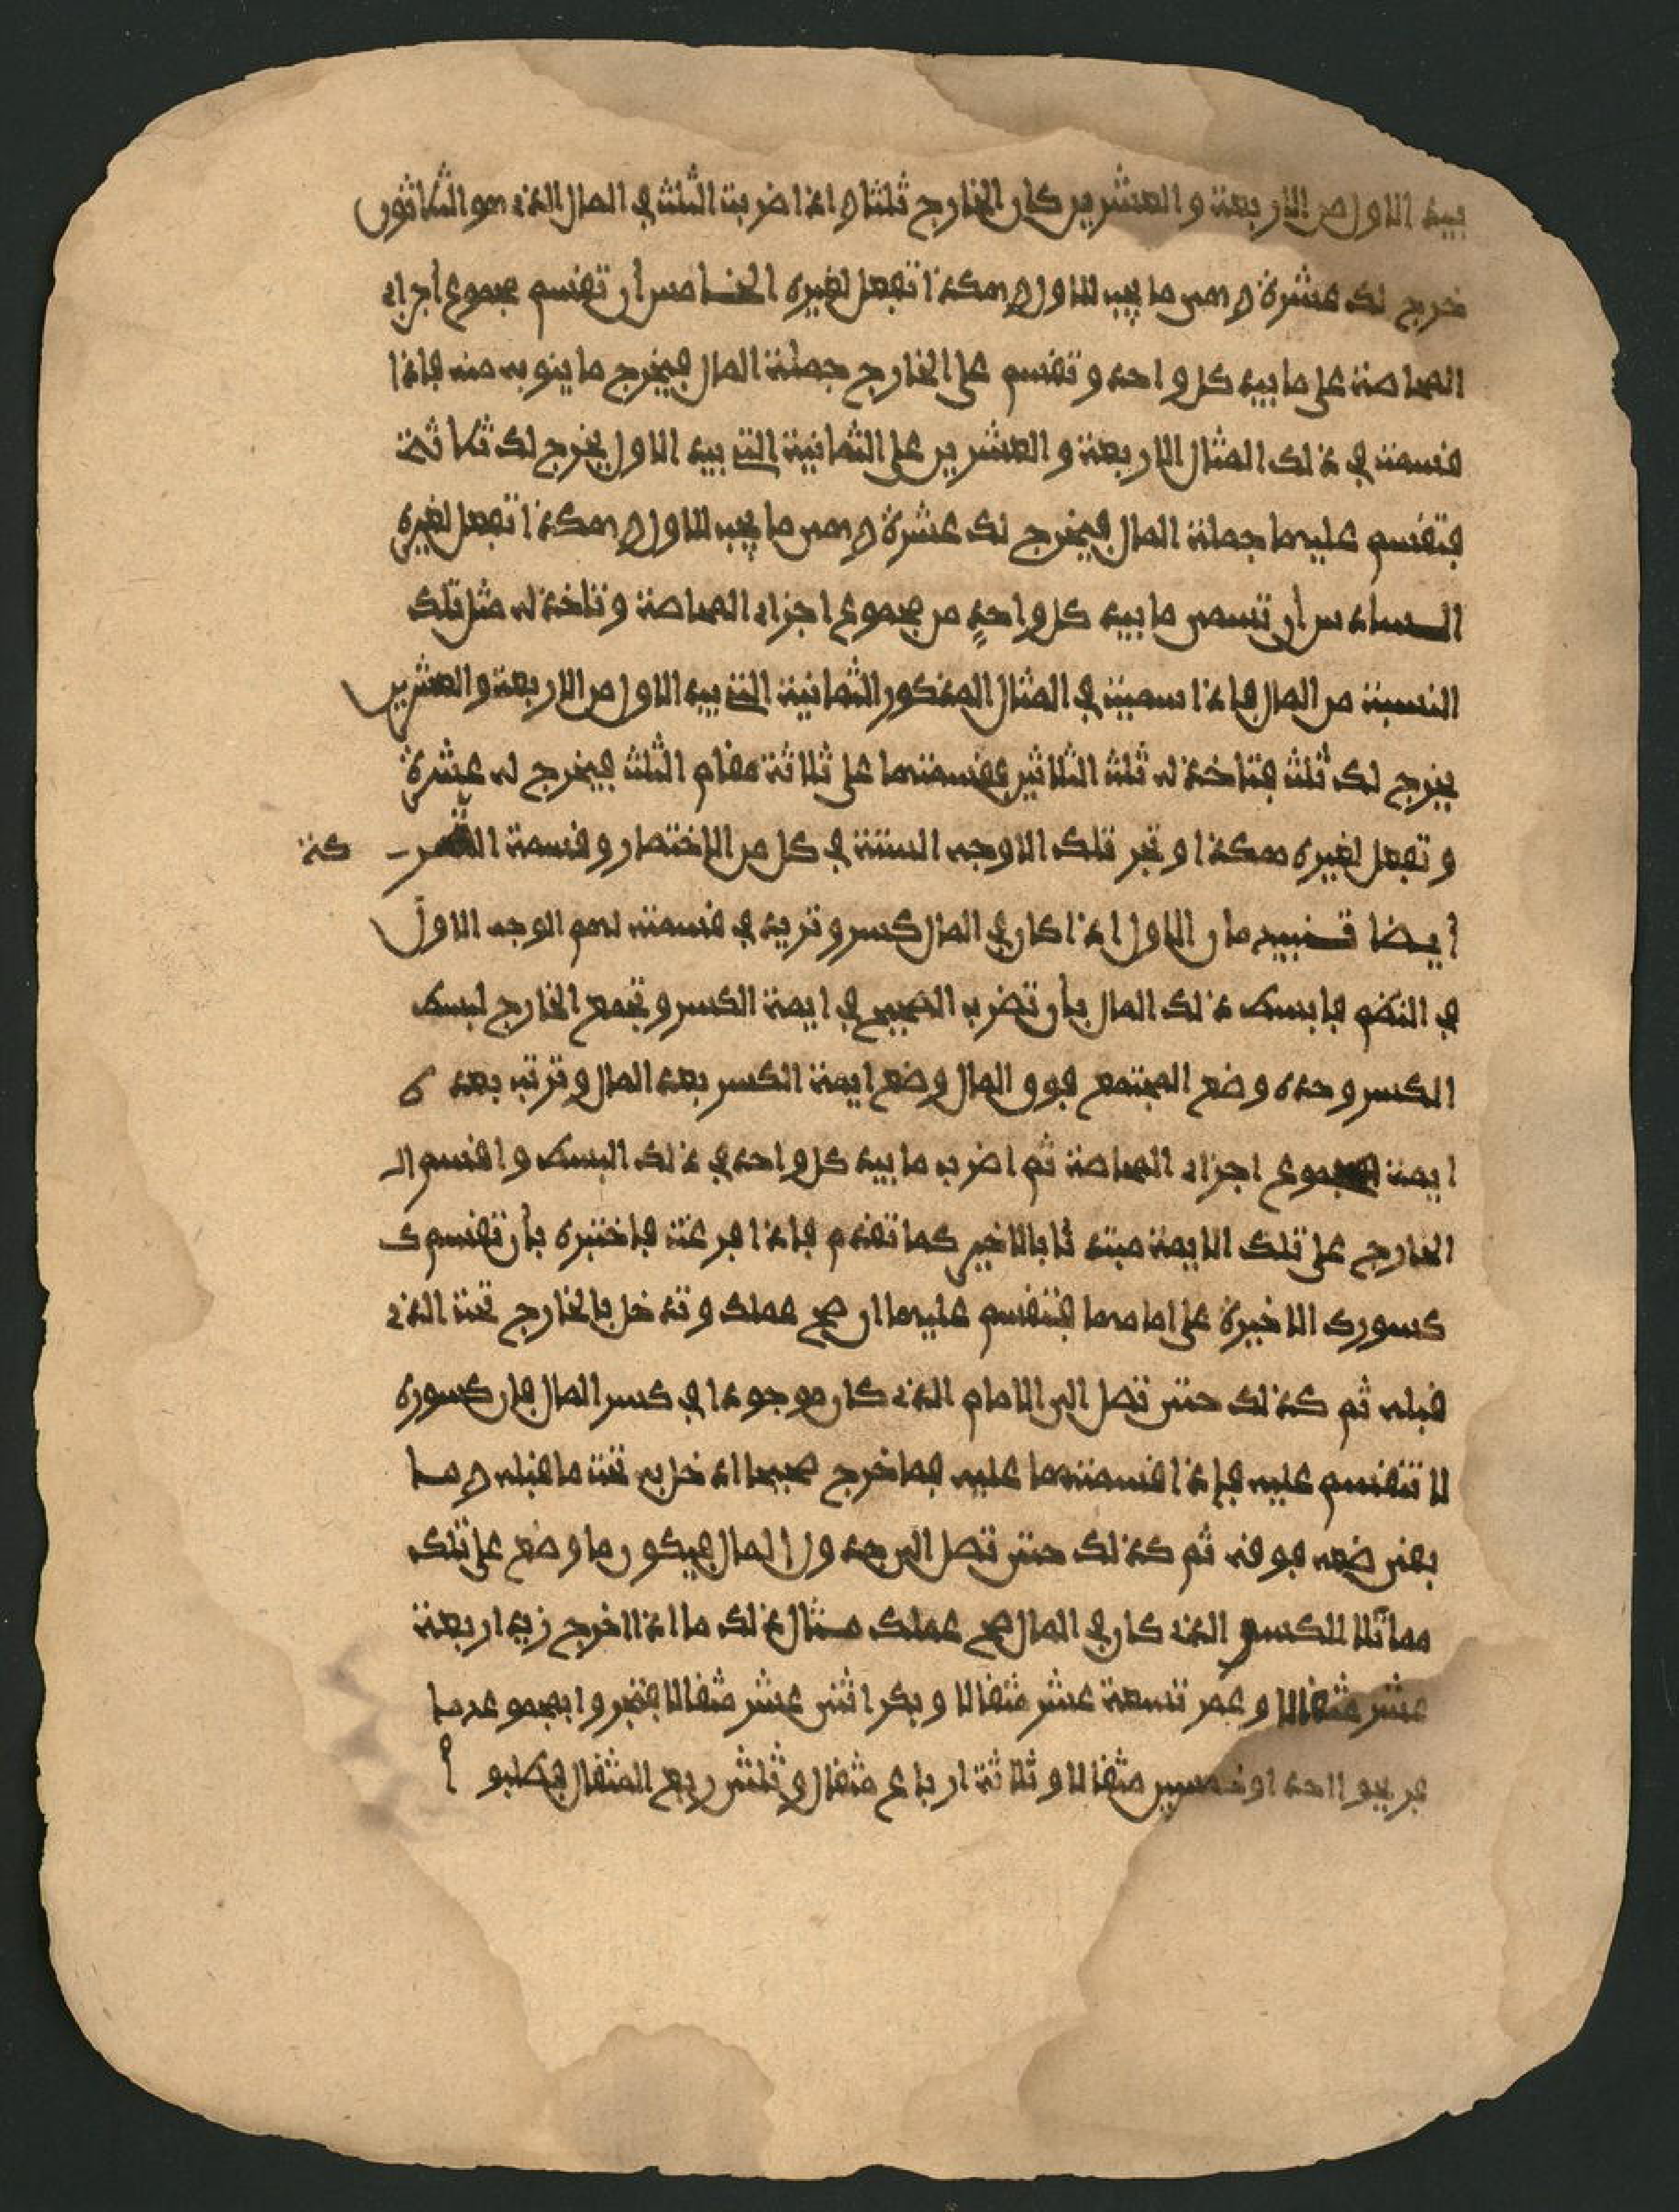 بيد الاول من الاربعة والعشرين كان الخارج ثلثا واذا ضربت الثلث في المال الذي هو الثلاثون
خرج لك عشرة وهي ما يجب للاول وهكذا تفعل لغيره الخامس أن تقسم مجموع أجزاء
المحاصة على ما بيد كل واحد وتقسم على الخارج جملة المال فيخرج ما ينوبه منه فإذا
قسمت في ذلك المثال الاربعة والعشرين على الثمانية التي بيد الاول يخرج لك ثلاثة
فتقسم عليها جملة المال فيخرج لك عشرة وهي ما يجب للاول وهكذا تفعل لغيره
السادس أن تسمي ما بيد كل واحدٍ من مجموع اجزاء المحاصة وتاخذ له مثل تلك
النسبة من المال فإذا سميت في المثال المذكور الثمانية التي بيد الاول من الاربعة والعشرين
يخرج لك ثلث فتاخذ له ثلث الثلاثين بقسمتها على ثلاثة مقام الثلث فيخرج له عشرة
وتفعل لغيره هكذا وتجر تلك الاوجه الستة في كل من الاختصار وقسمة
أيضا تنبيهان الاول اذا كان في المال كسر وتريد في قسمته لهم الوجه الاول
في النظم فابسط ذلك المال بأن تضرب الصحيح في ايمة الكسر وتجمع الخارج لبسط
الكسر وحده وضع المجتمع فوق المال وضع ايمة الكسر بعد المال وترتب بعد
ايمة مجموع اجزاء المحاصة ثم اضرب ما بيد كل واحد في ذلك البسط واقسم
الخارج على تلك الايمة مبتدئا بالاخير كما تقدم فإذا فرغت فاختبره بأن تقسم
كسورك الاخيرة على امامها فتنقسم عليها ان صح عملك وتدخل بالخارج تحت الذي
قبله ثم كذلك حتى تصل الى الامام الذي كان موجودا في كسر المال فإن كسوره
لا تنقسم عليه فإذا قسمتها عليه فما خرج صحيحا ادخل به تحت ما قبله وما
بقي ضعه فوقه ثم كذلك حتى تصل الى جدول المال فيكون ما وضع على تلك
مماثلا للكسر الذي كان في المال صح عملك مثال ذلك ما اذا اخرج زيد اربعة
عشر مثقالا وعمر تسعة عشر مثقالا وبكر اثنى عشر مثقالا فتجروا بمجموعها
فربحوا احدا وخمسين مثقالا وثلاثة ارباع مثقال وثلثى ربع المثقال فطلبو